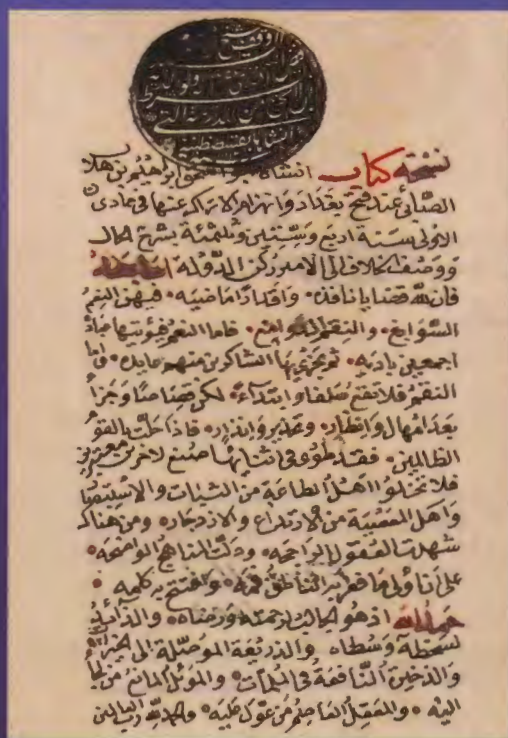 نسخة كتاب انشاه ابو اسحق ابراهيم بن هلال
الصابئ عند فتح بغداد وانهزام الاتراك عنها في جمادى
الاولى سنة اربع وستين وثلثمئة بشرح الحال
ووصف الخلاف الى الامير ركن الدولة اما بعد
فان لله قضايا نافذه واقدارا ماضيه فيهن النعم
السوابغ والنقم الدوامغ فاما النعم فيؤتيها عباده
اجمعين باديه ثم يجزي بها الشاكرين منهم عايده واما
النقم فلا تقع سلفا وابتداء لكن قصاصا وجزاء
بعد امهال وانظار وتحذير وانذار فاذا حلت بالقوم
الظالمين فقد طوى في اثنائها صنع لاخرين معتبرين
فلا تخلو اهل الطاعة من الثبات والاستبصار
واهل المعصية من الارتداع والازدجار ومن هناك
شهدت العقول الراجحه ودلت المناهج الواضحه
على ان اولى ما فغر به الناطق فمه وافتتح به كلمه
حمد الله اذ هو الجالب لرحمته ورضاه والذائد
لسخطه وسطاه والذريعة الموصلة الى الخيرات
والذخيرة النافعة في الملمات والموئل المانع من لجأ
اليه والمعقل العاصم من عول عليه والحمد لله رب العالمين